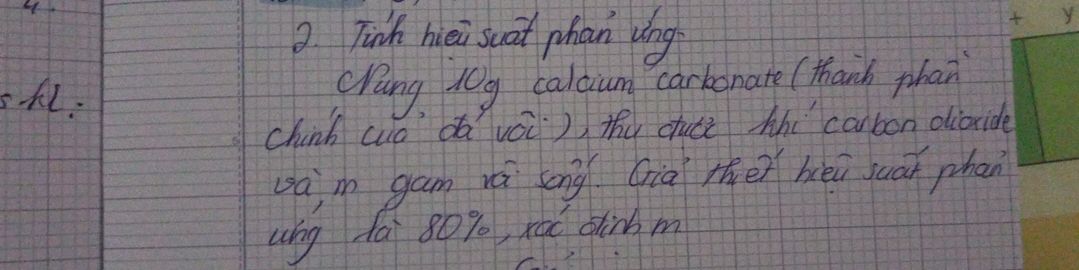 2. Tính hiệu suất phản ứng.
Nung 10g calcium carbonate (thành phần
s kl:
chính của đá vôi), thu được khí carbon dioxide
và m gam vôi sống. Giả thiết hiệu suất phản
ứng là 80%, xác định m